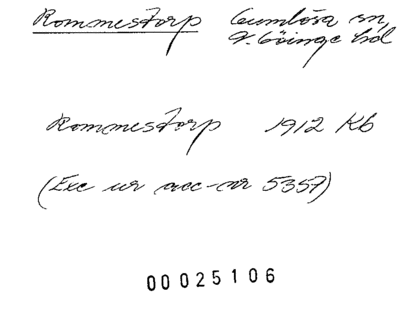 Rommestorp Gumlösa sn,
V. Göinge hd
Rommestorp 1912 Kb
(Exc ur acc-nr 5357)
00025106